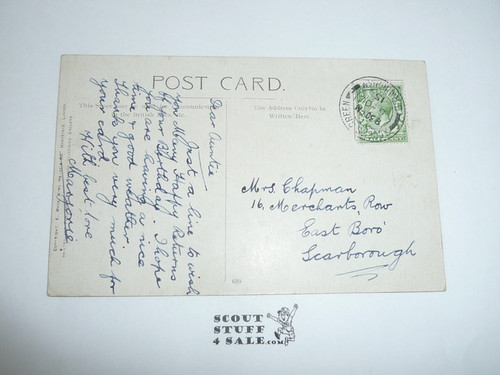 POST CARD.
The Address Only to be
Written Here.
Dear Auntie
Just a line to wish
you Many Happy Returns
of your Birthday. I hope
you are having a nice
time & good weather.
Thank you very much for
your card.
With best love
Marjorie
Mrs. Chapman
16, Merchants, Row
East Boro'
Scarborough
SCOUT
STUFF
4 SALE.com